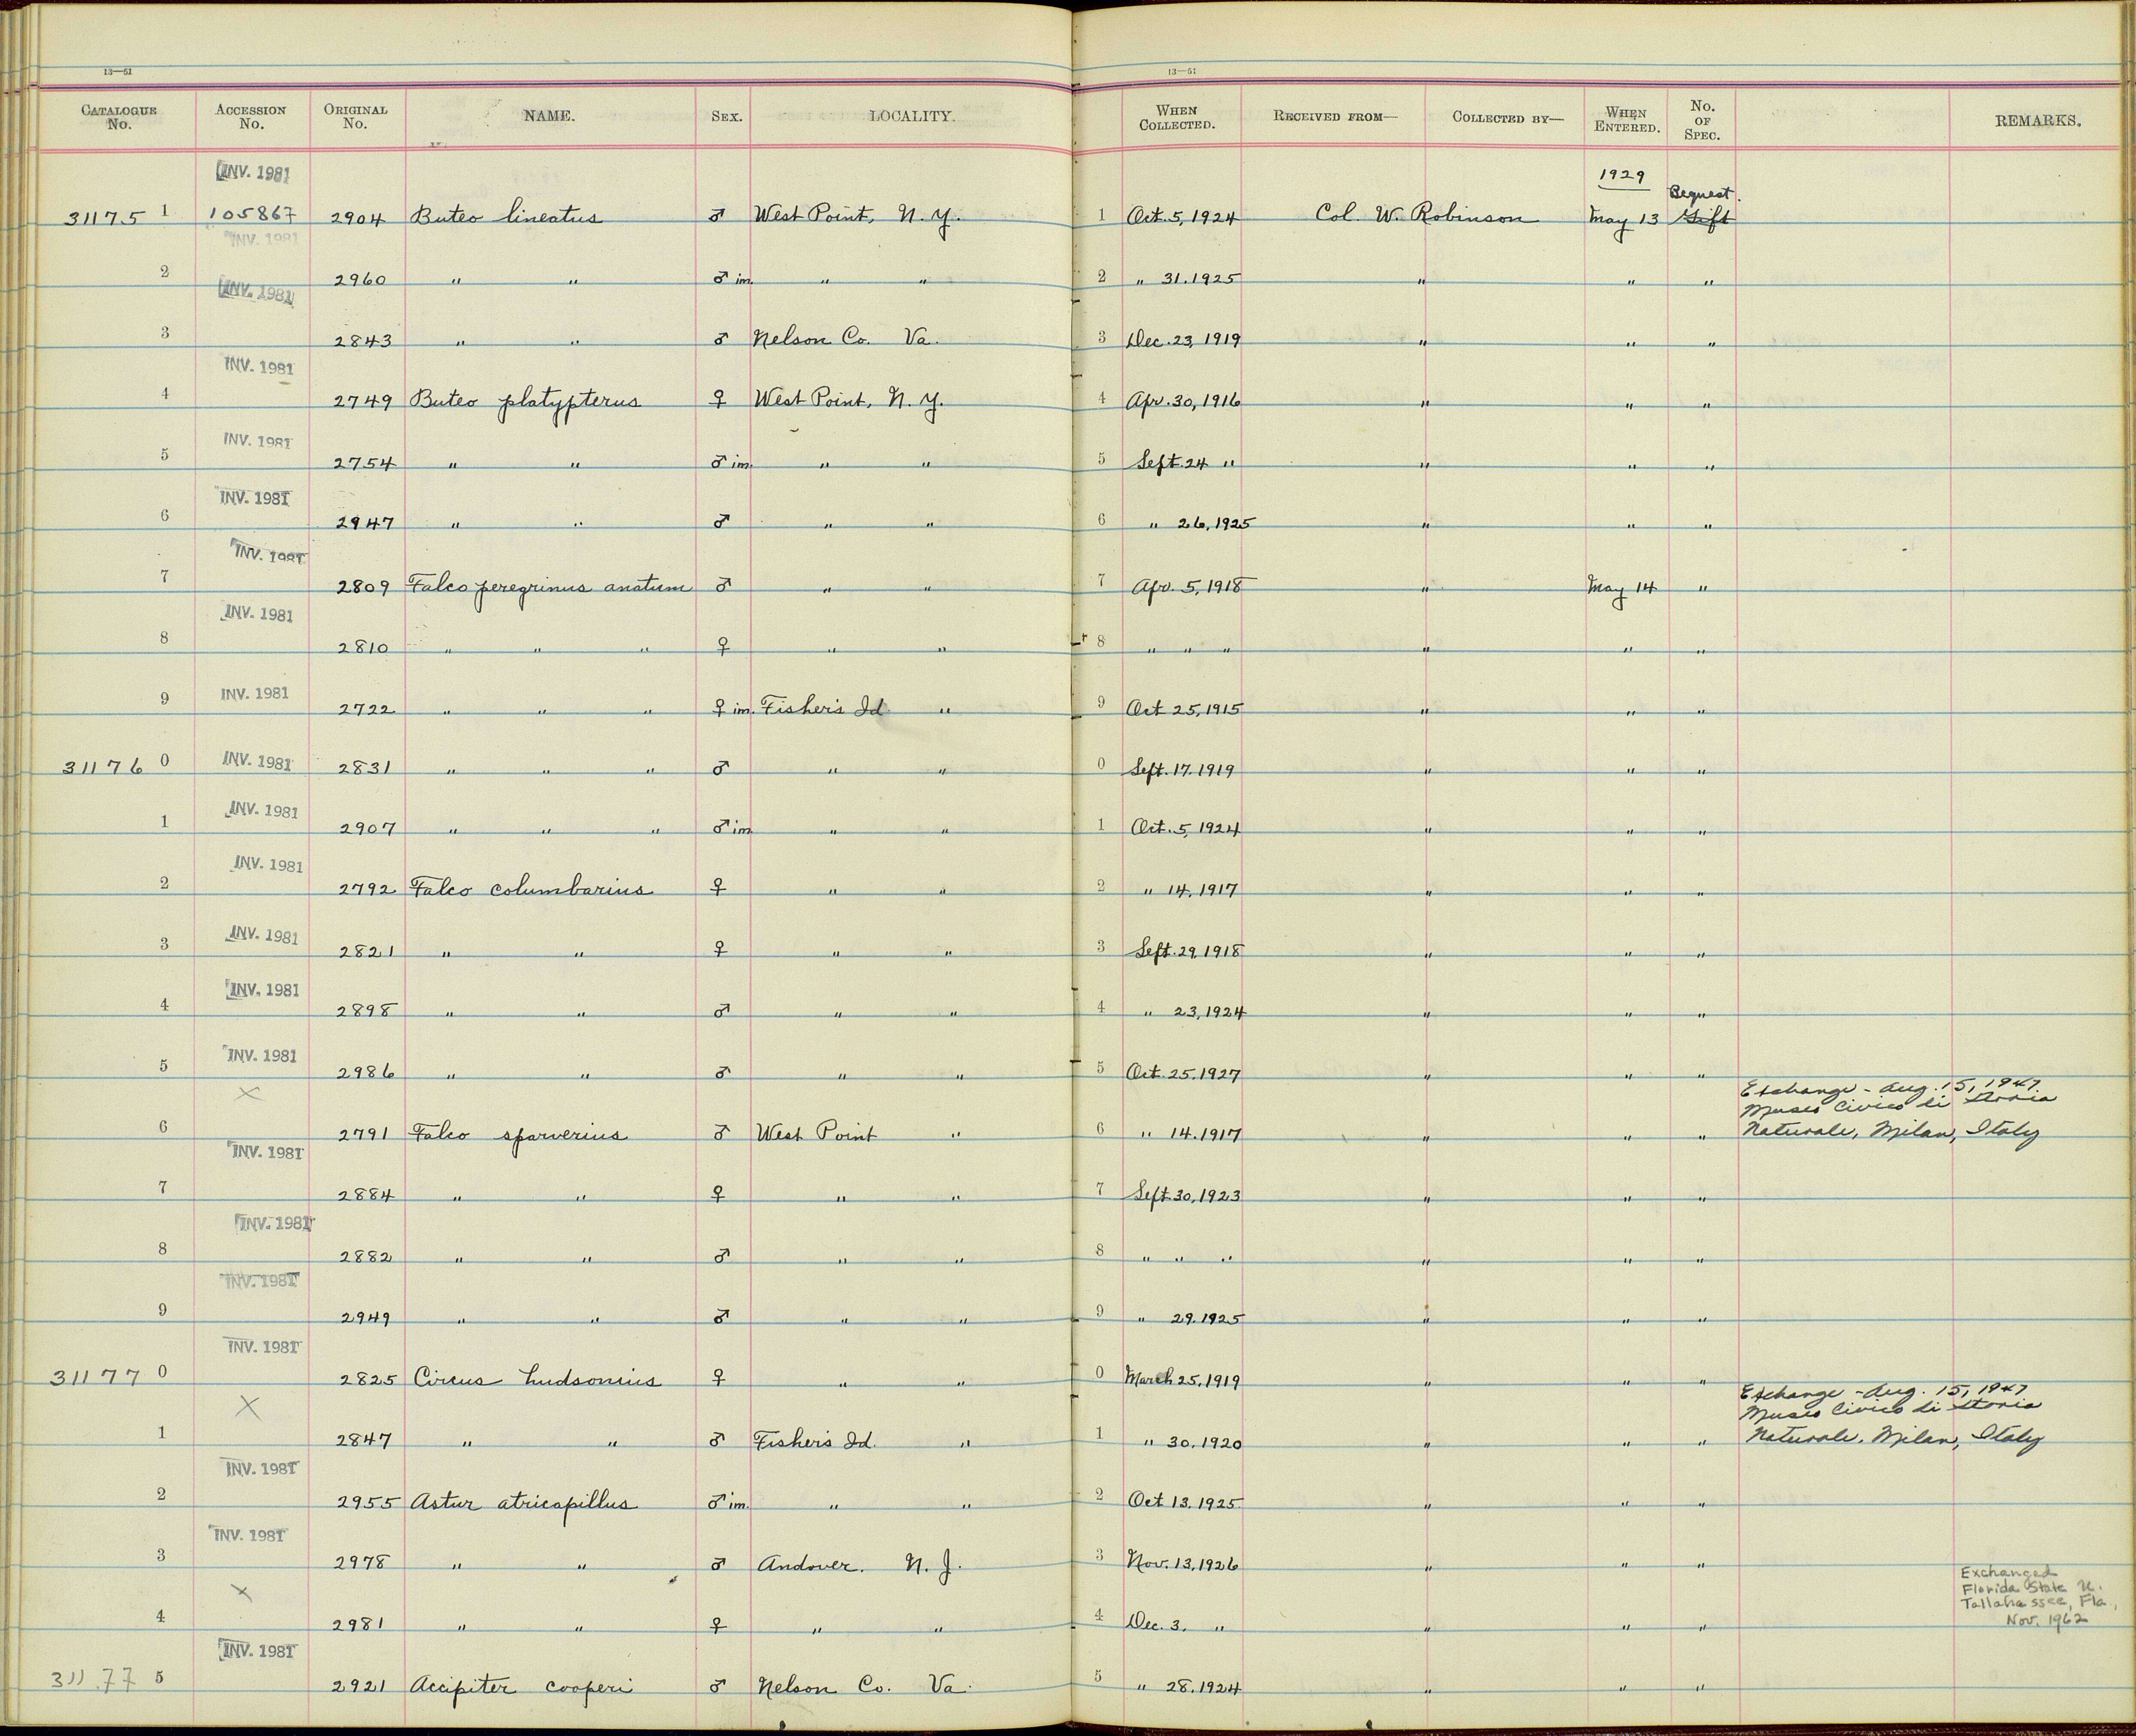 13—51 13—51
CATALOGUE No. ACCESSION No. ORIGINAL No. NAME. SEX. LOCALITY. WHEN COLLECTED. RECEIVED FROM— COLLECTED BY— WHEN ENTERED. No. OF SPEC. REMARKS.
INV. 1981 1929 Bequest.
31175 1 105867 2904 Buteo lineatus ♂ West Point, N. Y. 1 Oct. 5, 1924 Col. W. Robinson May 13 Gift
INV. 1981
2 2960 " " ♂ im. " " 2 " 31.1925 " " "
INV. 1981
3 2843 " " ♂ Nelson Co. Va. 3 Dec. 23, 1919 " " "
INV. 1981
4 2749 Buteo platypterus ♀ West Point, N. Y. 4 Apr. 30, 1916 " " "
INV. 1981
5 2754 " " ♂ im. " " 5 Sept. 24 " " " "
INV. 1981
6 2947 " " ♂ " " 6 " 26, 1925 " " "
INV. 1981
7 2809 Falco peregrinus anatum ♂ " " 7 Apr. 5, 1918 " May 14 "
INV. 1981
8 2810 " " " ♀ " " 8 " " " " " "
INV. 1981
9 2722 " " " ♀ im. Fisher's Id. " 9 Oct 25, 1915 " " "
INV. 1981
31176 0 2831 " " " ♂ " " 0 Sept. 17. 1919 " " "
INV. 1981
1 2907 " " " ♂ im " " 1 Oct. 5, 1924 " " "
INV. 1981
2 2792 Falco columbarius ♀ " " 2 " 14, 1917 " " "
INV. 1981
3 2821 " " ♀ " " 3 Sept. 29, 1918 " " "
INV. 1981
4 2898 " " ♂ " " 4 " 23, 1924 " " "
INV. 1981
5 2986 " " ♂ " " 5 Oct. 25. 1927 " " "
X Exchange - Aug. 15, 1947
Museo Civico di Storia
6 2791 Falco sparverius ♂ West Point " 6 " 14. 1917 " " " Naturale, Milan, Italy
INV. 1981
7 2884 " " ♀ " " 7 Sept 30, 1923 " " "
INV. 1981
8 2882 " " ♂ " " 8 " " " " " "
INV. 1981
9 2949 " " ♂ " " 9 " 29. 1925 " " "
INV. 1981
31177 0 2825 Circus hudsonius ♀ " " 0 March 25, 1919 " " "
X Exchange - Aug. 15, 1947
Museo Civico di Storia
1 2847 " " ♂ Fisher's Id. " 1 " 30. 1920 " " " Naturale, Milan, Italy
INV. 1981
2 2955 Astur atricapillus ♂ im. " " 2 Oct 13, 1925 " " "
INV. 1981
3 2978 " " ♂ Andover. N. J. 3 Nov. 13, 1926 " " "
X Exchanged
Florida State U.
Tallahassee, Fla.,
Nov. 1962
4 2981 " " ♀ " " 4 Dec. 3. " " " "
INV. 1981
31177 5 2921 Accipiter cooperi ♂ Nelson Co. Va. 5 " 28. 1924 " " "